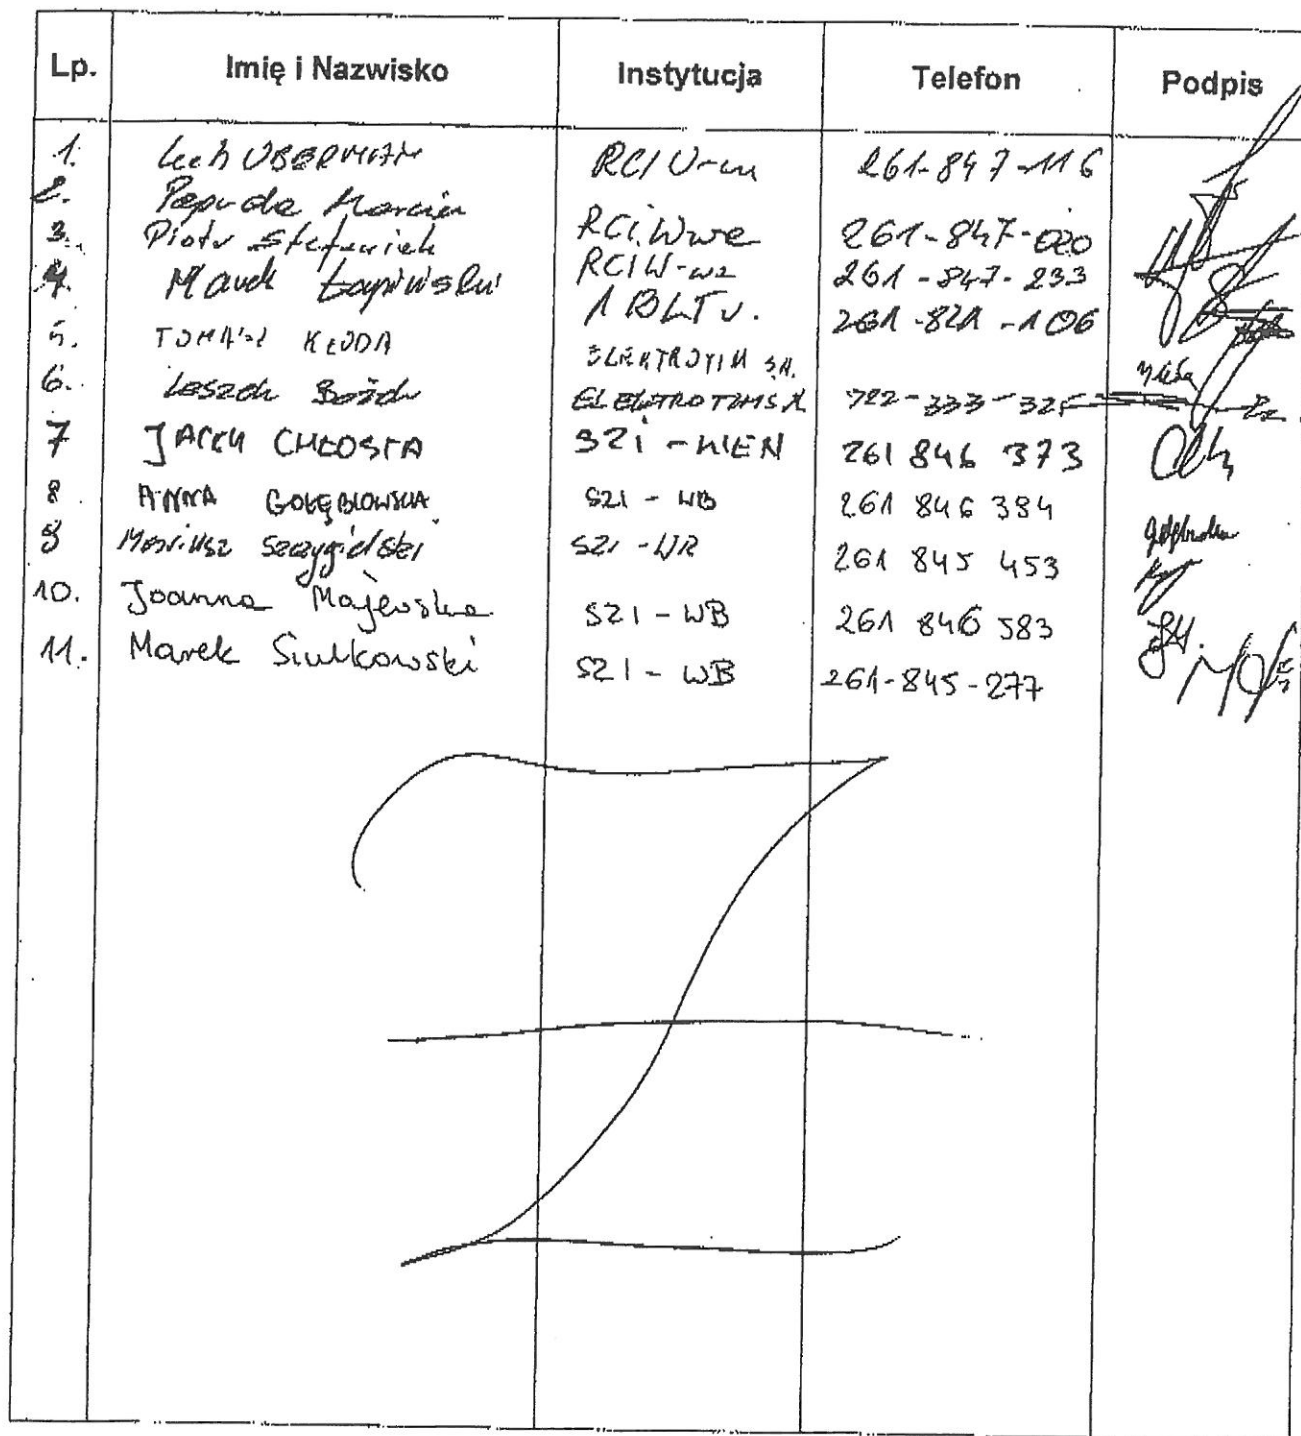 Lp. Imię i Nazwisko Instytucja Telefon Podpis
1. Lech UBERMAN 261-847-116
2. Marcin
3. Piotr RCI Wwa 261-847-020
4. Marek Łapiński RCI W-wa 261-847-233
1 BLTr. 261-821-106
5. TOMASZ KŁODA ELEKTROTIM S.A.
6. Leszek ELEKTROTIM S.A. 722-333-325
7 JACEK CHŁOSTA SZI - WEN 261 846 373
8 ANNA GOŁĘBIOWSKA SZI - WB 261 846 384
9 Mariusz Szczygielski SZI - WR 261 845 453
10. Joanna Majewska SZI - WB 261 846 583
11. Marek Siulkowski SZI - WB 261-845-277